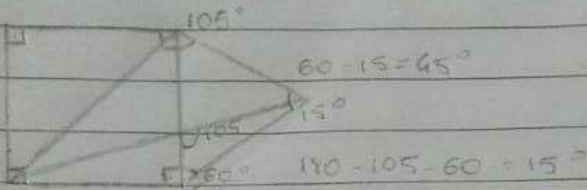 105°
60 - 15 = 45°
15°
105
60°
180 - 105 - 60 = 15°